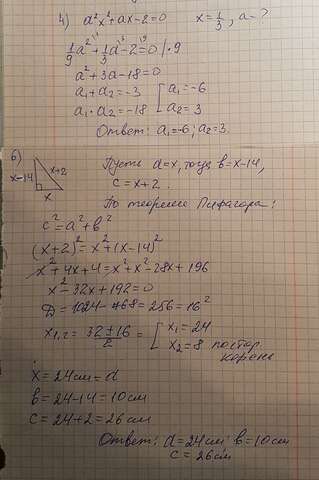 4) a²x²+ax-2=0 x=1/3, a-?
1/9a²+1/3a-2=0 |·9
a²+3a-18=0
a₁+a₂=-3 [a₁=-6
a₁·a₂=-18 [a₂=3
Ответ: a₁=-6; a₂=3.
6) Пусть a=x, тогда b=x-14,
x-14 x+2 x
c=x+2.
По теореме Пифагора:
c²=a²+b²
(x+2)²=x²+(x-14)²
x²+4x+4=x²+x²-28x+196
x²-32x+192=0
D=1024-768=256=16²
x₁,₂=32±16/2=[x₁=24
x₂=8 постор.
корень
x=24см=a
b=24-14=10см
c=24+2=26см
Ответ: a=24см; b=10см
c=26см